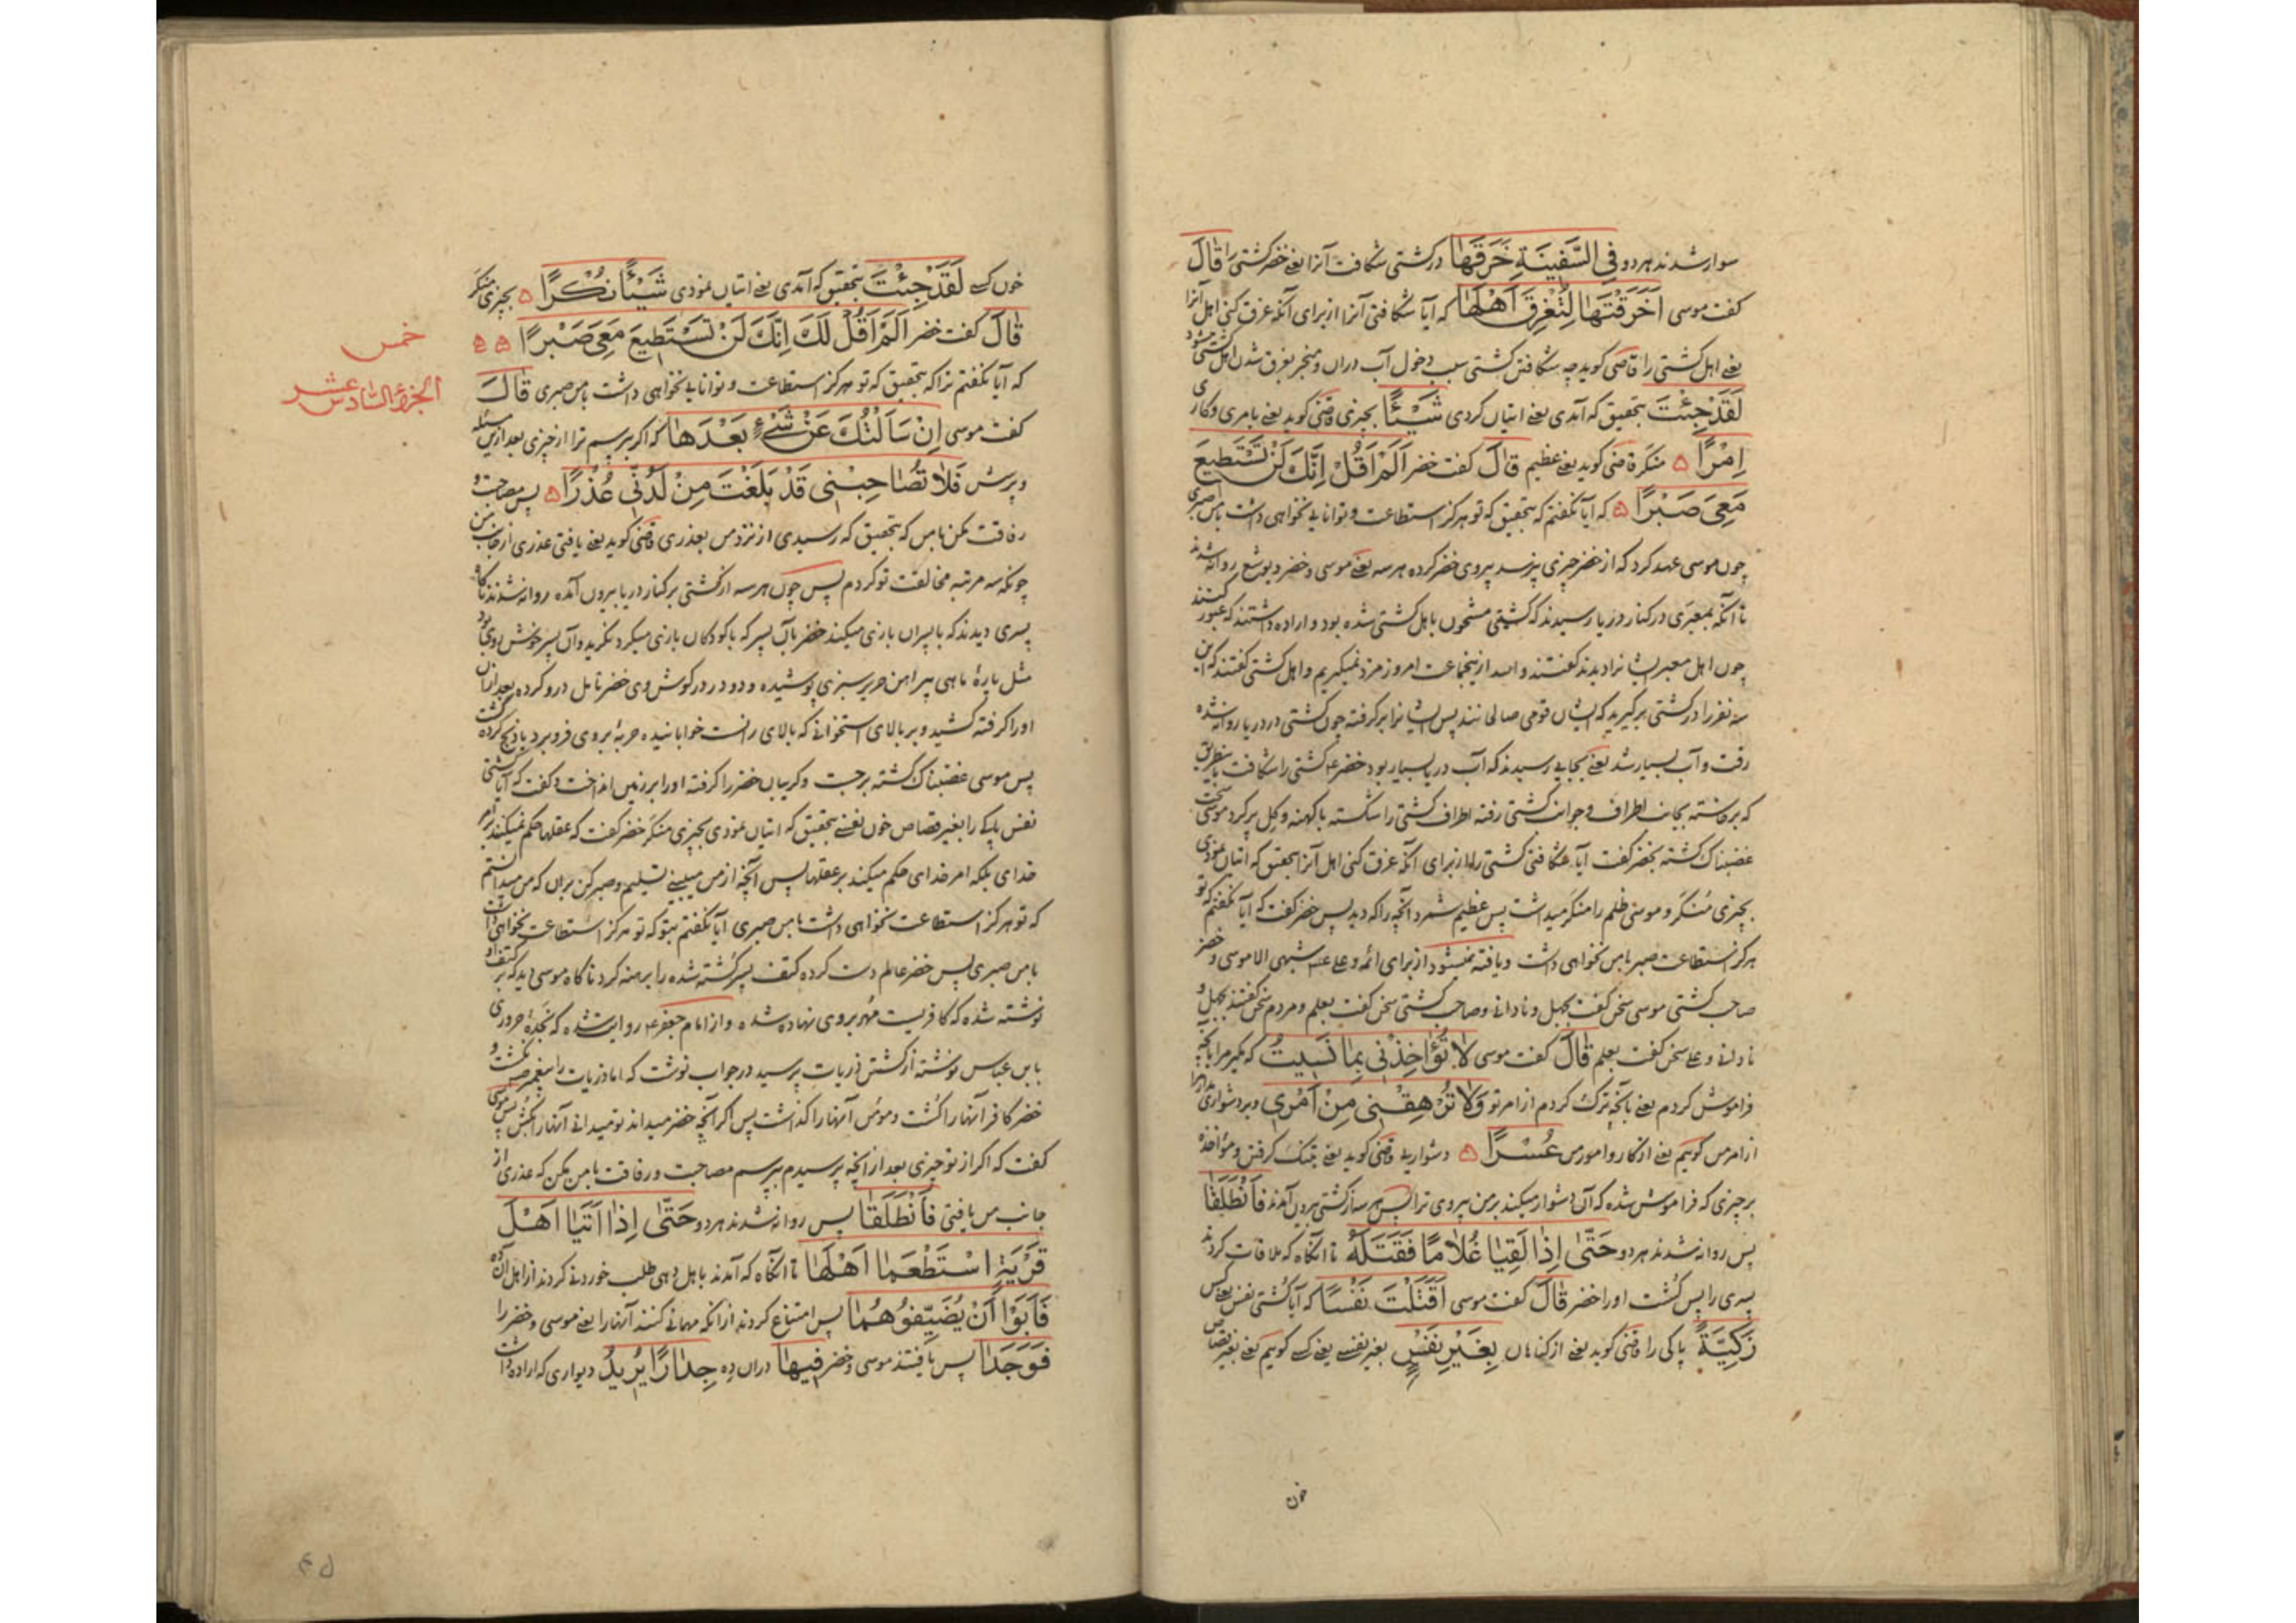 سوار شدند هر دو فِى السَّفِينَةِ خَرَقَهَا در کشتی شکافت آنرا یعنے خضر کشتی را قَالَ
کفت موسی اَخَرَقْتَهَا لِتُغْرِقَ اَهْلَهَا که آیا شکافتی آنرا از برای آنکه غرق کنی اهل آنرا
یعنے اهل کشتی را قاضی کوید چه شکافتن کشتی سبب دخول آب دران و منجر بغرق شدن اهل کشتی میشود
لَقَدْ جِئْتَ بتحقیق که آمدی یعنے اتیان کردی شَيْئًا بچیزی قاضی کوید یعنے بامری و کاری
اِمْرًا ۵ منکر قاضی کوید یعنے عظیم قَالَ کفت خضر اَلَمْ اَقُلْ اِنَّكَ لَنْ تَسْتَطِيعَ
مَعِىَ صَبْرًا ۵ که آیا نکفتم که بتحقیق که تو هرکز استطاعت و توانایے نخواهی داشت با من صبری
چون موسی عهد کرد که از خضر چیزی نپرسد پیروی خضر کرده هر سه یعنے موسی و خضر و یوشع روانه شدند
تا آنکه بمعبری در کنار دریا رسیدند که کشتی مشحون باهل کشتی شده بود و اراده داشتند که عبور کنند
چون اهل معبر ایشانرا دیدند کفتند والله ازینجماعت امروز مزد نمیکیریم و اهل کشتی کفتند که این
سه نفر را در کشتی برکیرید که ایشان قومی صالحانند پس ایشانرا برکرفته چون کشتی در دریا روانه شده
رفت و آب بسیار شد یعنے بجایے رسیدند که آب دریا بسیار بود خضر ع کشتی را شکافت باینطریق
که برخاسته بجانب اطراف و جوانب کشتی رفته اطراف کشتی را شکسته با کهنه و کل پر کرد موسی سخت
غضبناک کشته بخضر کفت آیا شکافتی کشتی را از برای آنکه غرق کنی اهل آنرا بتحقیق که اتیان نمودی
بچیزی مُنکَر و موسی ظلم را منکر میداشت پس عظیم شمرد آنچه را که دید پس خضر کفت که آیا نکفتم که تو
هرکز استطاعت صبر با من نخواهی داشت و یافته نمیشود از برای ائمه و علی ع شبهی الا موسی و خضر
صاحب کشتی موسی سخن کفت بجهل و نادانے و صاحب کشتی سخن کفت بعلم و مردم سخن کفتند بجهل و
نادانے و علی سخن کفت بعلم قَالَ کفت موسی لَا تُؤَاخِذْنِى بِمَا نَسِيتُ که مکیر مرا بآنچه
فراموش کردم یعنے بآنچه ترک کردم از امر تو وَلَا تُرْهِقْنِى مِنْ اَمْرِى و بر دشواری مدار مرا
از امر من کوییم یعنے از کار و امور من عُسْرًا ۵ دشواریے قاضی کوید یعنے بتنک کرفتن و مؤاخذه
بر چیزی که فراموش شده که آن دشوار میکند بر من پیروی ترا پس هر سه از کشتی بیرون آمدند فَانْطَلَقَا
پس روانه شدند هر دو حَتَّى اِذَا لَقِيَا غُلَامًا فَقَتَلَهُ تا آنکاه که ملاقات کردند
پسری را پس کشت اورا خضر قَالَ کفت موسی اَقَتَلْتَ نَفْسًا که آیا کشتی نفس یعنے کس
زَكِيَّةً پاکی را قاضی کوید یعنے از کناهان بِغَيْرِ نَفْسٍ بغیر نفسے یعنے کسے کوییم یعنے بغیر قصاص
خون
خون کسے لَقَدْ جِئْتَ بتحقیق که آمدی یعنے اتیان نمودی شَيْئًا نُكْرًا ۵ بچیزی منکر
قَالَ کفت خضر اَلَمْ اَقُلْ لَكَ اِنَّكَ لَنْ تَسْتَطِيعَ مَعِىَ صَبْرًا ۵ ۵
خمس
الجزء السادس عشر
که آیا نکفتم ترا که بتحقیق که تو هرکز استطاعت و توانایے نخواهی داشت با من صبری قَالَ
کفت موسی اِنْ سَاَلْتُكَ عَنْ شَىْءٍ بَعْدَهَا که اکر بپرسم ترا از چیزی بعد ازین مسئله
و پرسش فَلَا تُصَاحِبْنِى قَدْ بَلَغْتَ مِنْ لَدُنِّى عُذْرًا ۵ پس مصاحبت و
رفاقت مکن با من که بتحقیق که رسیدی از نزد من بعذری قاضی کوید یعنے یافتی عذری از جانب من
چونکه سه مرتبه مخالفت تو کردم پس چون هر سه از کشتی بر کنار دریا بیرون آمده روانه شدند ناکاه
پسری دیدند که با پسران بازی میکند خضر بآن پسر که با کودکان بازی میکرد نکرید و آن پسر خوش روی بود
مثل پارهٔ ماهی پیراهن حریر سبزی پوشیده و دو در در کوش وی خضر تامل درو کرده بعد ازان
اورا کرفته کشید و بر بالای استخوانے که بالای رانست خوابانیده حربهٔ بروی فرو برد یا ذبح کرده کشت
پس موسی غضبناک کشته برجست و کریبان خضر را کرفته اورا بر زمین انداخت و کفت که آیا کشتی
نفس پاکے را بغیر قصاص خون یعنے بتحقیق که اتیان نمودی بچیزی منکر خضر کفت که عقلها حکم نمیکنند بر امر
خدای بلکه امر خدای حکم میکند بر عقلها پس آنچه از من میبینے تسلیم و صبر کن بران که من میدانستم
که تو هرکز استطاعت نخواهی داشت با من صبری آیا نکفتم بتو که تو هرکز استطاعت نخواهی داشت
با من صبری پس خضر عالم دست کرده کتف پسر کُشته شده را برهنه کرد ناکاه موسی دید که بر کتف او
نوشته شده که کافریست مُهر بروی نهاده شده و از امام جعفر ع روایت شده که نجدهٔ حروری
بابن عباس نوشته از کشتن ذریات پرسید در جواب نوشت که اما ذریات را پیغمبر ص نکشت و
خضر کافر آنها را کشت و مؤمن آنها را کذاشت پس اکر آنچه خضر میداند تو میدانے آنها را بکش پس موسی
کفت که اکر از تو چیزی بعد از آنچه پرسیدم بپرسم مصاحبت و رفاقت با من مکن که عذری از
جانب من یافتی فَانْطَلَقَا پس روانه شدند هر دو حَتَّى اِذَا اَتَيَا اَهْلَ
قَرْيَةٍ اسْتَطْعَمَا اَهْلَهَا تا آنکاه که آمدند باهل دهی طلب خوردنے کردند از اهل آن ده
فَاَبَوْا اَنْ يُضَيِّفُوهُمَا پس امتناع کردند از آنکه مهمانے کنند آنها را یعنے موسی و خضر را
فَوَجَدَا پس یافتند موسی و خضر فِيهَا دران ده جِدَارًا يُرِيدُ دیواری که اراده داشت